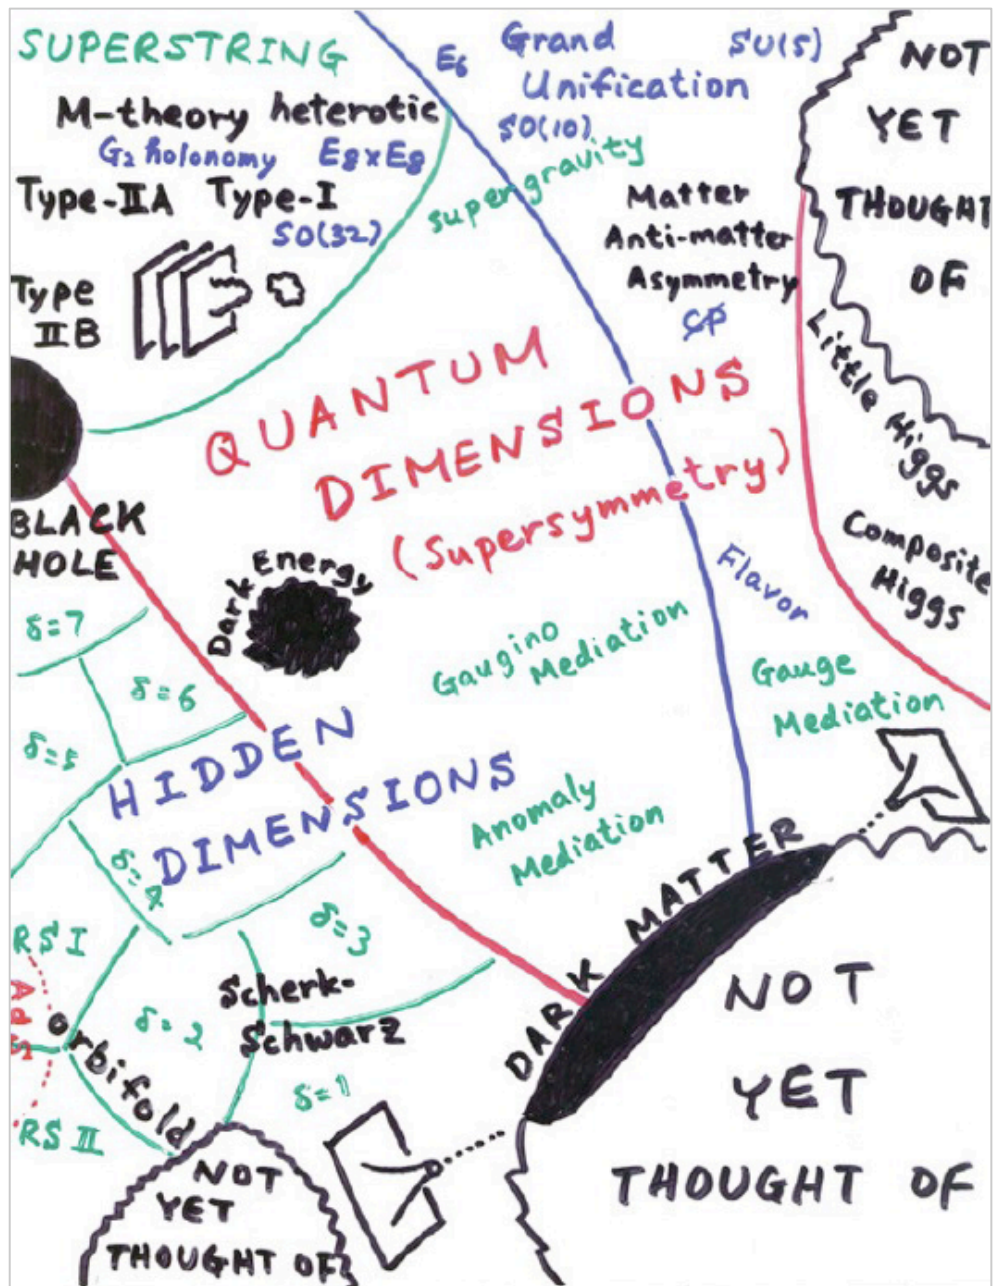 SUPERSTRING
M-theory heterotic
G₂ holonomy E₈xE₈
Type-IIA Type-I
SO(32)
Type
IIB
E₆
Grand
Unification
SU(5)
SO(10)
supergravity
Matter
Anti-matter
Asymmetry
CP
NOT
YET
THOUGHT
OF
Little Higgs
Composite
Higgs
QUANTUM
DIMENSIONS
(Supersymmetry)
BLACK
HOLE
Dark Energy
Flavor
Gaugino
Mediation
Gauge
Mediation
Anomaly
Mediation
δ=7
δ=6
δ=5
HIDDEN
DIMENSIONS
δ=4
δ=3
RS I
AdS
Scherk-
Schwarz
δ=2
orbifold
δ=1
RS II
DARK MATTER
NOT
YET
THOUGHT OF
NOT
YET
THOUGHT OF